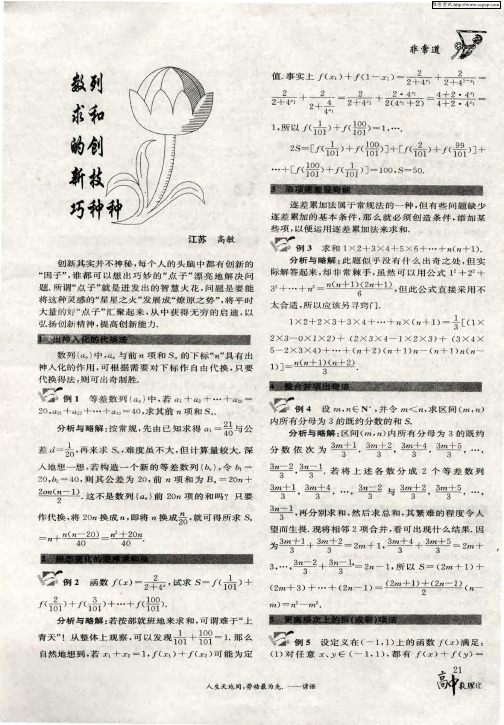 维普资讯 http://www.cqvip.com
非常道
数列
求和
的创
新技
巧种种
江苏 高敏
创新其实并不神秘,每个人的头脑中都有创新的
“因子”,谁都可以想出巧妙的“点子”漂亮地解决问
题.所谓“点子”就是迸发出的智慧火花,问题是要能
将这种灵感的“星星之火”发展成“燎原之势”,将平时
大量的好“点子”汇聚起来,从中获得无穷的启迪,以
弘扬创新精神,提高创新能力.
1 出神入化的代换法
数列{aₙ}中,aₙ与前n项和Sₙ的下标“n”具有出
神入化的作用,可根据需要对下标作自由代换,只要
代换得法,则可出奇制胜.
例1 等差数列{aₙ}中,若a₁+a₂+…+a₂₀=
20,a₂₁+a₂₂+…+a₄₀=40,求其前n项和Sₙ.
分析与略解:按常规,先由已知求得a₁=21/40与公
差d=1/20,再来求Sₙ,难度虽不大,但计算量较大.深
入地想一想,若构造一个新的等差数列{bₙ},令b₁=
20,b₂=40,则其公差为20,前n项和为Bₙ=20n+
20n(n-1)/2.这不是数列{aₙ}前20n项的和吗?只要
作代换,将20n换成n,即将n换成n/20,就可得所求Sₙ
=n+n(n-20)/40=(n²+20n)/40.
例2 函数f(x)=2/(2+4ˣ),试求S=f(1/101)+
f(2/101)+f(3/101)+…+f(100/101).
分析与略解:若按部就班地来求和,可谓难于“上
青天”!从整体上观察,可以发现1/101+100/101=1.那么
自然地想到,若x₁+x₂=1,f(x₁)+f(x₂)可能为定
值.事实上f(x₁)+f(1-x₁)=2/(2+4^x₁)+2/(2+4^(1-x₁))=
2/(2+4^x₁)+2/(2+4/4^x₁)=2/(2+4^x₁)+2·4^x₁/(2(4^x₁+2))=(4+2·4^x₁)/(4+2·4^x₁)=
1,所以f(1/101)+f(100/101)=1,….
2S=[f(1/101)+f(100/101)]+[f(2/101)+f(99/101)]+
…+[f(100/101)+f(1/101)]=100,S=50.
3 添项逐差显奇能
逐差累加法属于常规法的一种,但有些问题缺少
逐差累加的基本条件,那么就必须创造条件,添加某
些项,以便运用逐差累加法来求和.
例3 求和1×2+3×4+5×6+…+n(n+1).
分析与略解:此题似乎没有什么出奇之处,但实
际解答起来,却非常棘手,虽然可以用公式1²+2²+
3²+…+n²=n(n+1)(2n+1)/6,但此公式直接采用不
太合适,所以应该另寻窍门.
1×2+2×3+3×4+…+n×(n+1)=1/3[(1×
2×3-0×1×2)+(2×3×4-1×2×3)+(3×4×
5-2×3×4)+…+(n+2)(n+1)n-(n+1)n(n-
1)]=n(n+1)(n+2)/3.
4 整合并项出奇迹
例4 设m,n∈N*,并令m<n,求区间(m,n)
内所有分母为3的既约分数的和S.
分析与略解:区间(m,n)内所有分母为3的既约
分数依次为(3m+1)/3,(3m+2)/3,(3m+4)/3,(3m+5)/3,…,
(3n-2)/3,(3n-1)/3.若将上述各数分成2个等差数列
(3m+1)/3,(3m+4)/3,…,(3n-2)/3与(3m+2)/3,(3m+5)/3,…,
(3n-1)/3,再分别求和,然后求总和,其繁难的程度令人
望而生畏.现将相邻2项合并,看可出现什么结果.因
为(3m+1)/3+(3m+2)/3=2m+1,(3m+4)/3+(3m+5)/3=2m+
3,…,(3n-2)/3+(3n-1)/3=2n-1,所以S=(2m+1)+
(2m+3)+…+(2n-1)=((2m+1)+(2n-1))/2(n-
m)=n²-m².
5 更高层次上的拆(或裂)项法
例5 设定义在(-1,1)上的函数f(x)满足:
(1)对任意x、y∈(-1,1),都有f(x)+f(y)=
21
人生天地间,劳动最为先. ——谚语
高中数理化